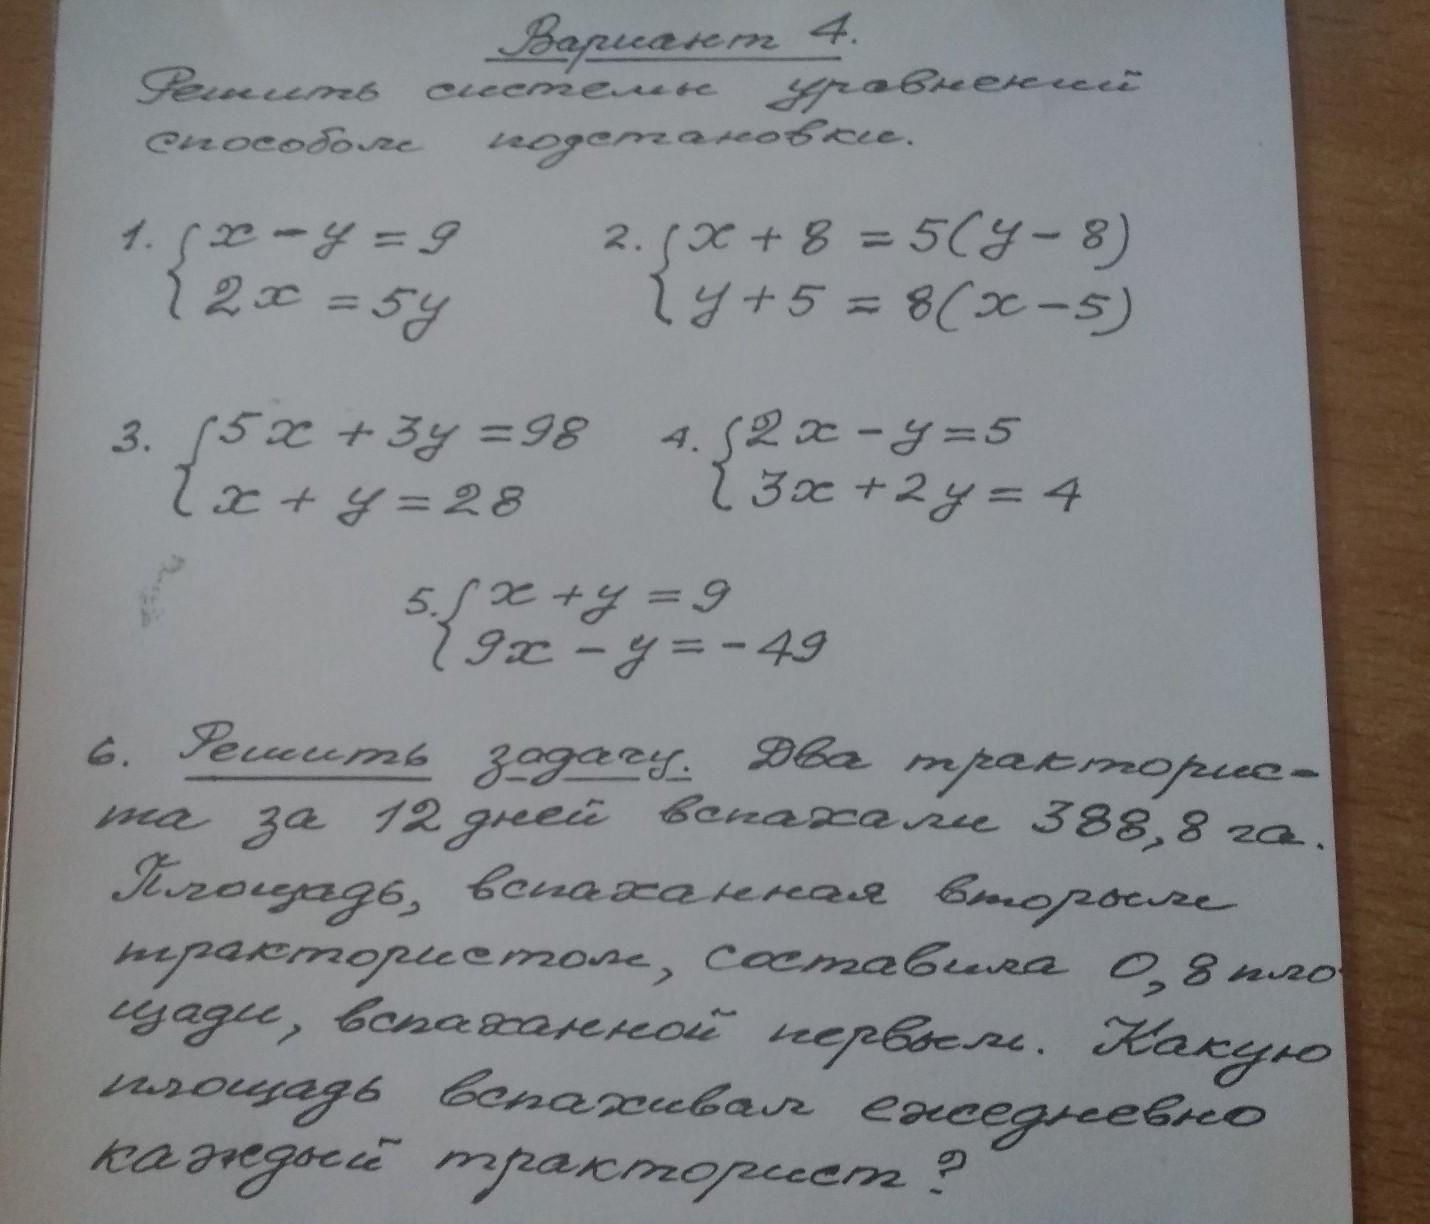 Вариант 4.
Решить системы уравнений
способом подстановки.
1. { x - y = 9
2x = 5y
2. { x + 8 = 5(y - 8)
y + 5 = 8(x - 5)
3. { 5x + 3y = 98
x + y = 28
4. { 2x - y = 5
3x + 2y = 4
5. { x + y = 9
9x - y = - 49
6. Решить задачу. Два тракторис-
та за 12 дней вспахали 388,8 га.
Площадь, вспаханная вторым
трактористом, составила 0,8 пло
щади, вспаханной первым. Какую
площадь вспахивал ежедневно
каждый тракторист?